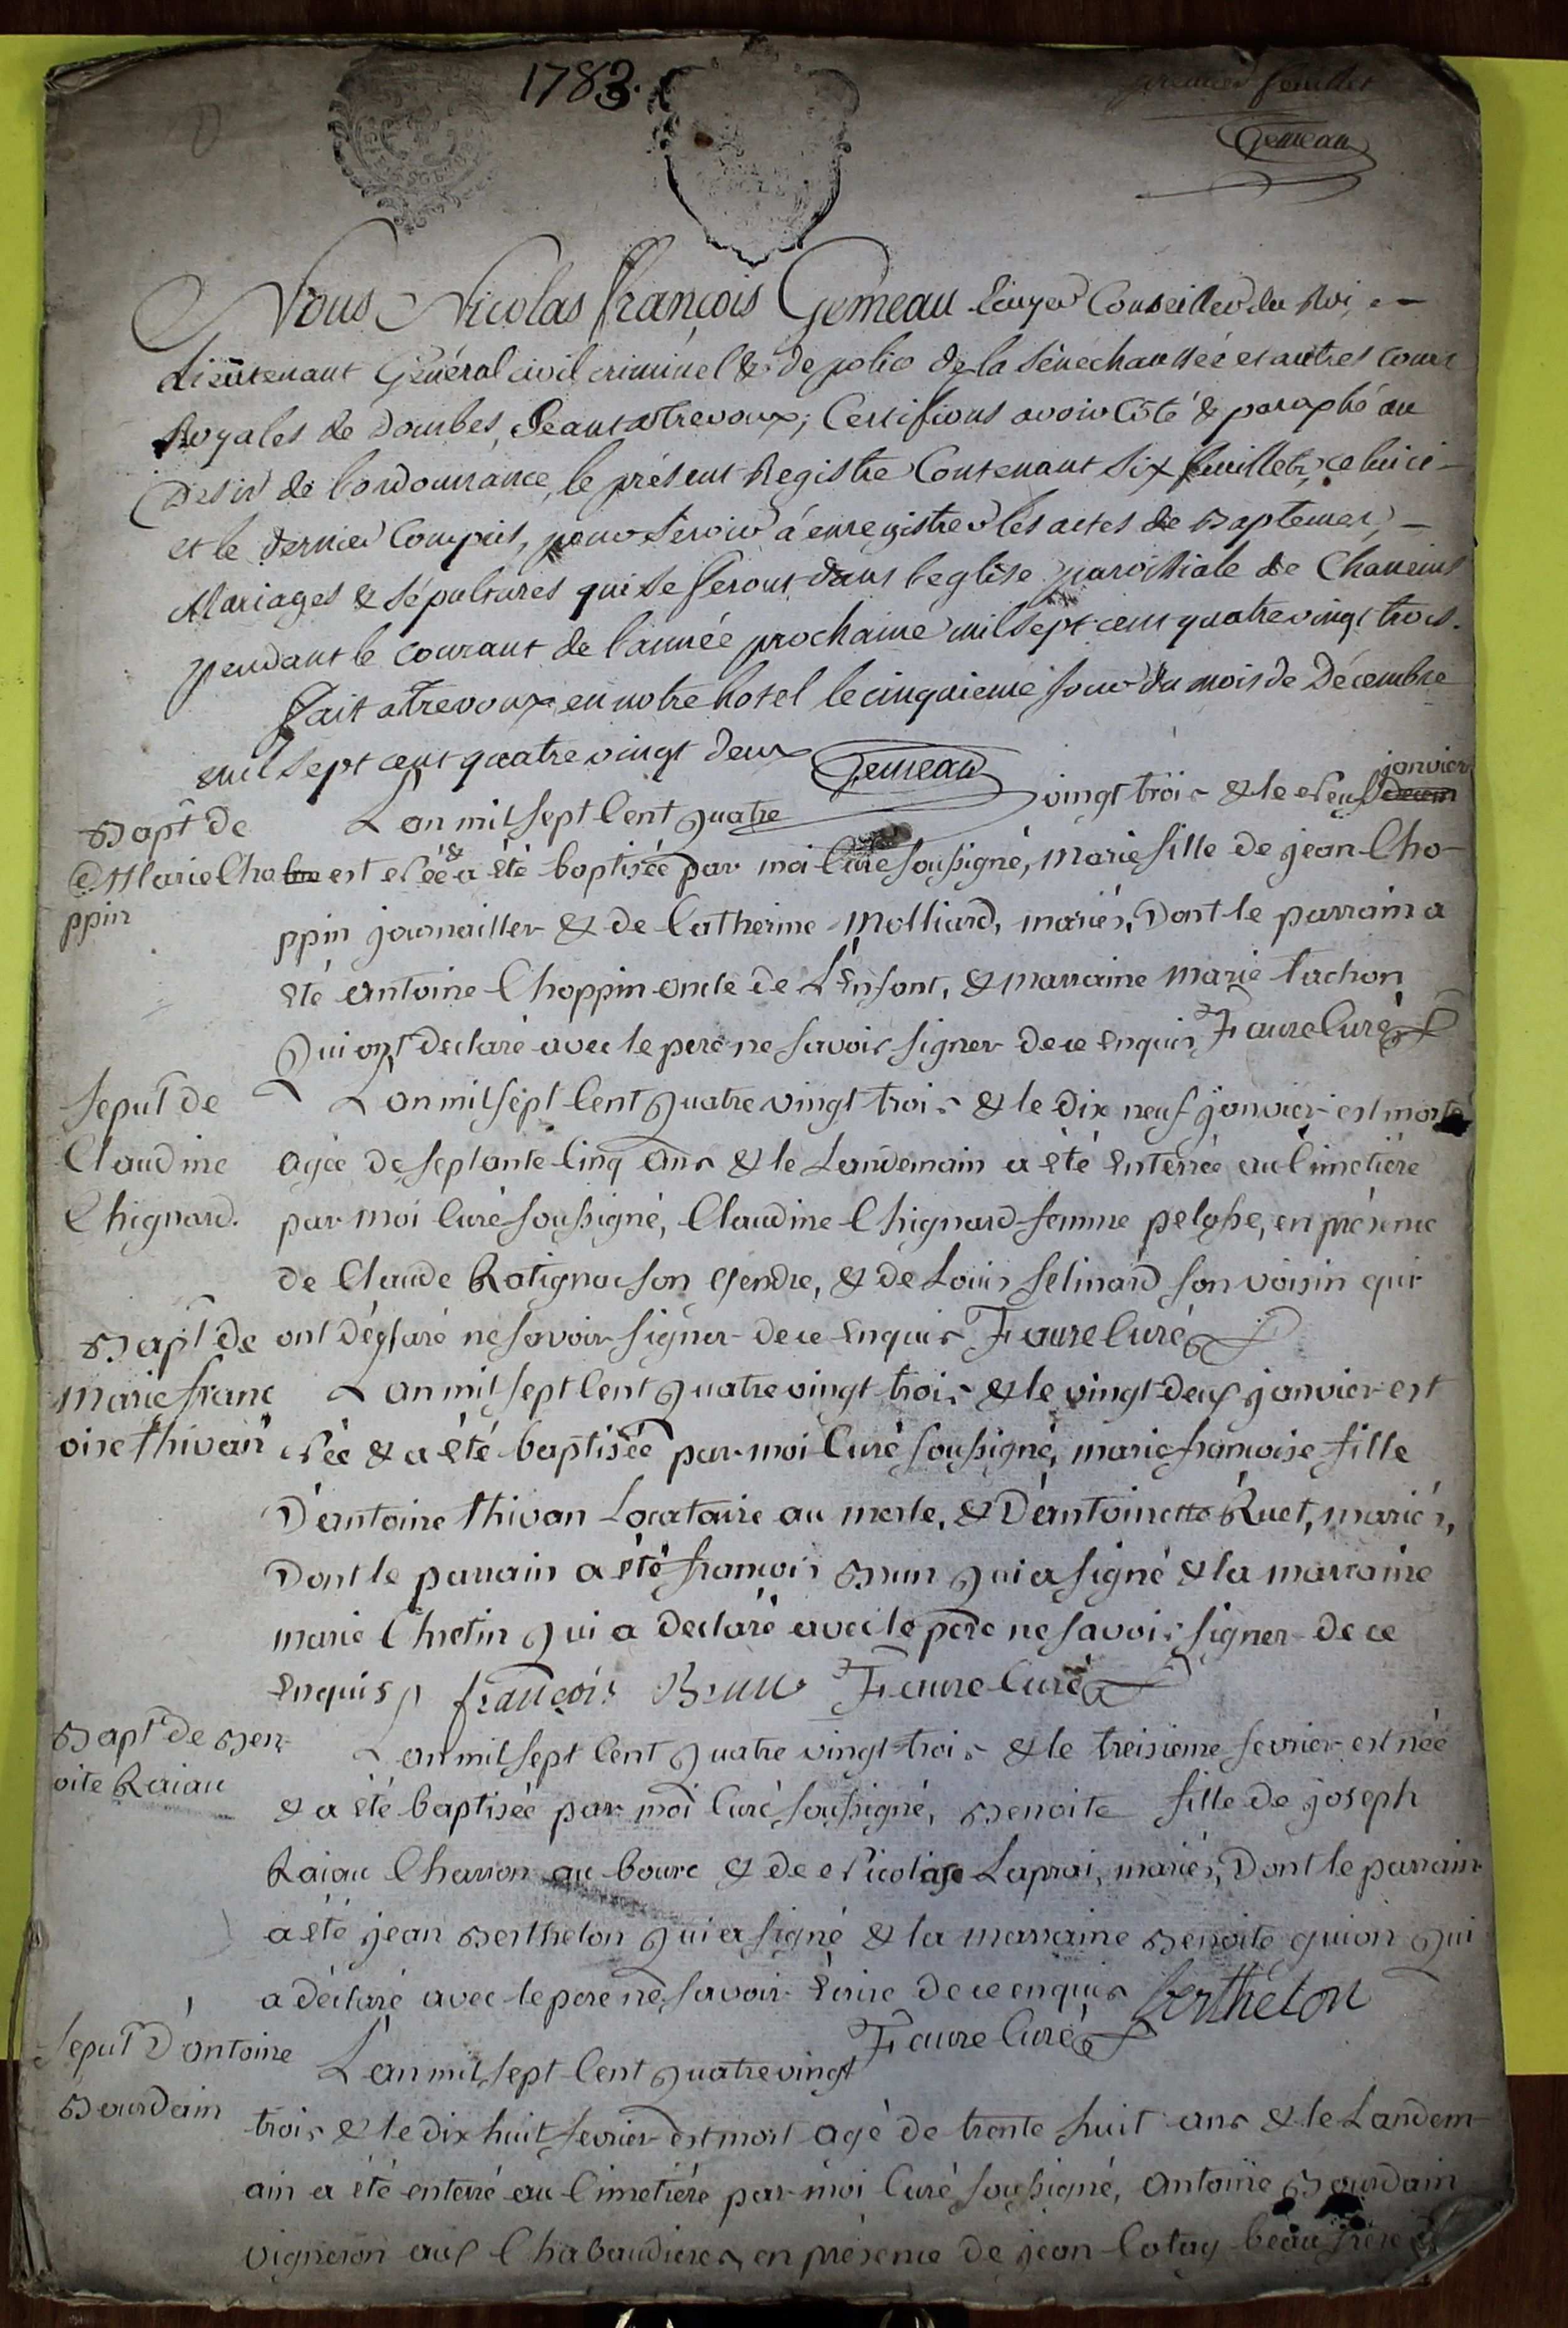 1783.
premier feuillet
Gemeau
Nous Nicolas françois Gemeau Ecuyer Conseiller du Roi,
Lieutenant Général civil criminel & de police de la Sénéchaussée et autres cours
Royales de Dombes, Séant a Trevoux; Certifions avoir Coté & paraphé au
Desir de lordonnance, le présent Registre Contenant Six feuillets, celui ci
et le dernier Compris, pour Servir à enregistrer les actes de Baptemes,
Mariages & Sépultures qui se feront dans leglise paroissiale de Chaneins
pendant le courant de lannée prochaine mil sept cent quatre vingt trois.
Fait a Trevoux en notre hotel le cinquieme jour du mois de Décembre
mil sept cent quatre vingt deux Gemeau
Bapt de
Marie Cho
ppin
L'an mil sept Cent quatre vingt trois & le Neuf janvier
est Née & a été baptisée par moi Curé soussigné, Marie fille de jean Cho-
ppin journailler & de Catherine Molliard, mariés, Dont le parrain a
été antoine Choppin oncle de L'Enfant, & marraine marie tachon
Qui ont declaré avec le pere ne savoir signer de ce Enquis Faure Curé
Sepult de
Claudine
Chignard.
L'an mil sept Cent quatre vingt trois & le dix neuf janvier est morte
agée de septante Cinq ans & le Landemain a été Enterrée au Cimetière
par moi Curé soussigné, Claudine Chignard femme pelasse, en présence
de Claude Ratignac son Gendre, & de Louis felinard son voisin qui
ont déclaré ne savoir signer de ce Enquis Faure Curé
Bapt de
Marie franc
oise thivan
L'an mil sept Cent quatre vingt trois & le vingt deux janvier est
Née & a été baptisée par moi Curé soussigné, marie francoise fille
D'antoine thivan Locataire au merle, & D'antoinette Ruet, mariés,
Dont le parrain a été francois Brun qui a signé & la marraine
marie Chretin qui a declaré avec le pere ne savoir signer de ce
Enquis françois Brun Faure Curé
Bapt de Ben-
oite Raiau
L'an mil sept Cent quatre vingt trois & le treisieme fevrier est née
& a été baptisée par moi Curé soussigné, Benoite fille de joseph
Raiau Charron au bourc & de Nicolase Laprai, mariés, Dont le parrain
a été jean Berthelon qui a signé & la marraine Benoite guion qui
a déclaré avec le pere ne savoir Ecrire de ce enquis berthelon
Faure Curé
Sepult D'antoine
Bourdain
L'an mil sept Cent quatre vingt
trois & le dix huit fevrier est mort agé de trente huit ans & le Landem-
ain a été enterré au Cimetiére par moi Curé soussigné, antoine Bourdain
vigneron aux Chabaudieres, en présence de jean Cotay beau frere